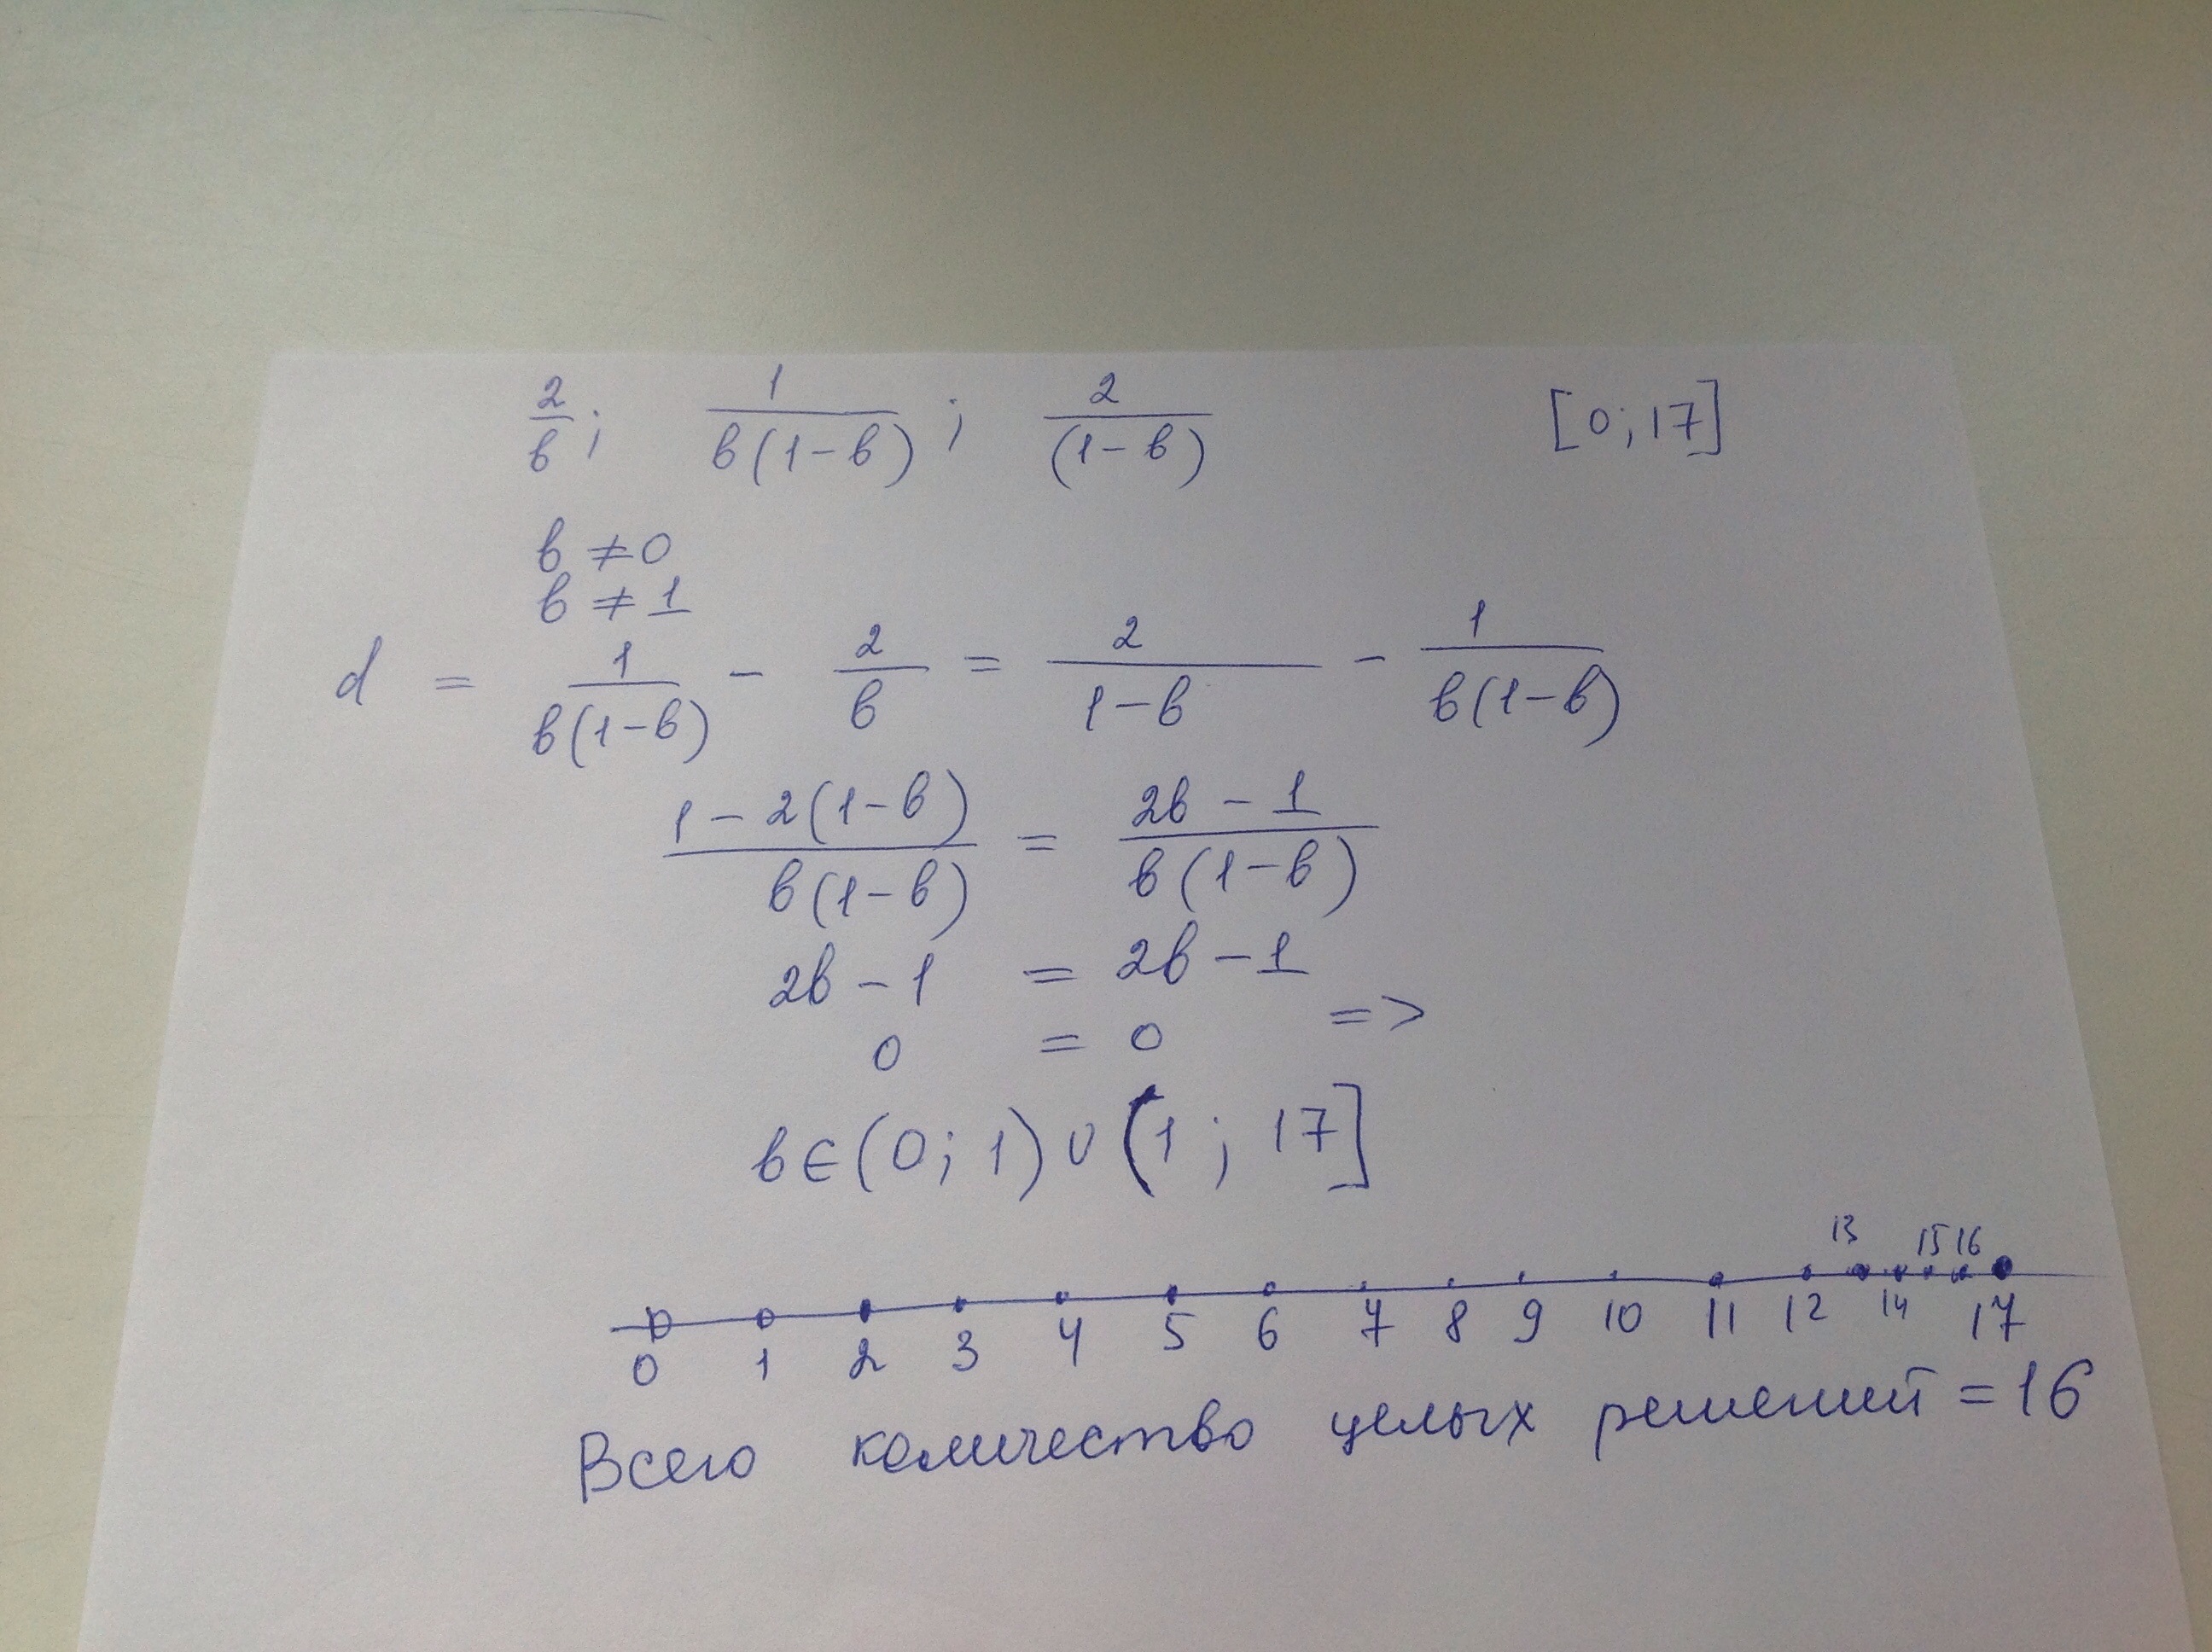 2/в; 1/(в(1-в)); 2/(1-в) [0; 17]
в ≠ 0
в ≠ 1
d = 1/(в(1-в)) - 2/в = 2/(1-в) - 1/(в(1-в))
(1-2(1-в))/(в(1-в)) = (2в-1)/(в(1-в))
2в-1 = 2в-1
0 = 0 =>
в∈(0; 1)∪(1; 17]
13 15 16
0 1 2 3 4 5 6 7 8 9 10 11 12 14 17
Всего количество целых решений = 16